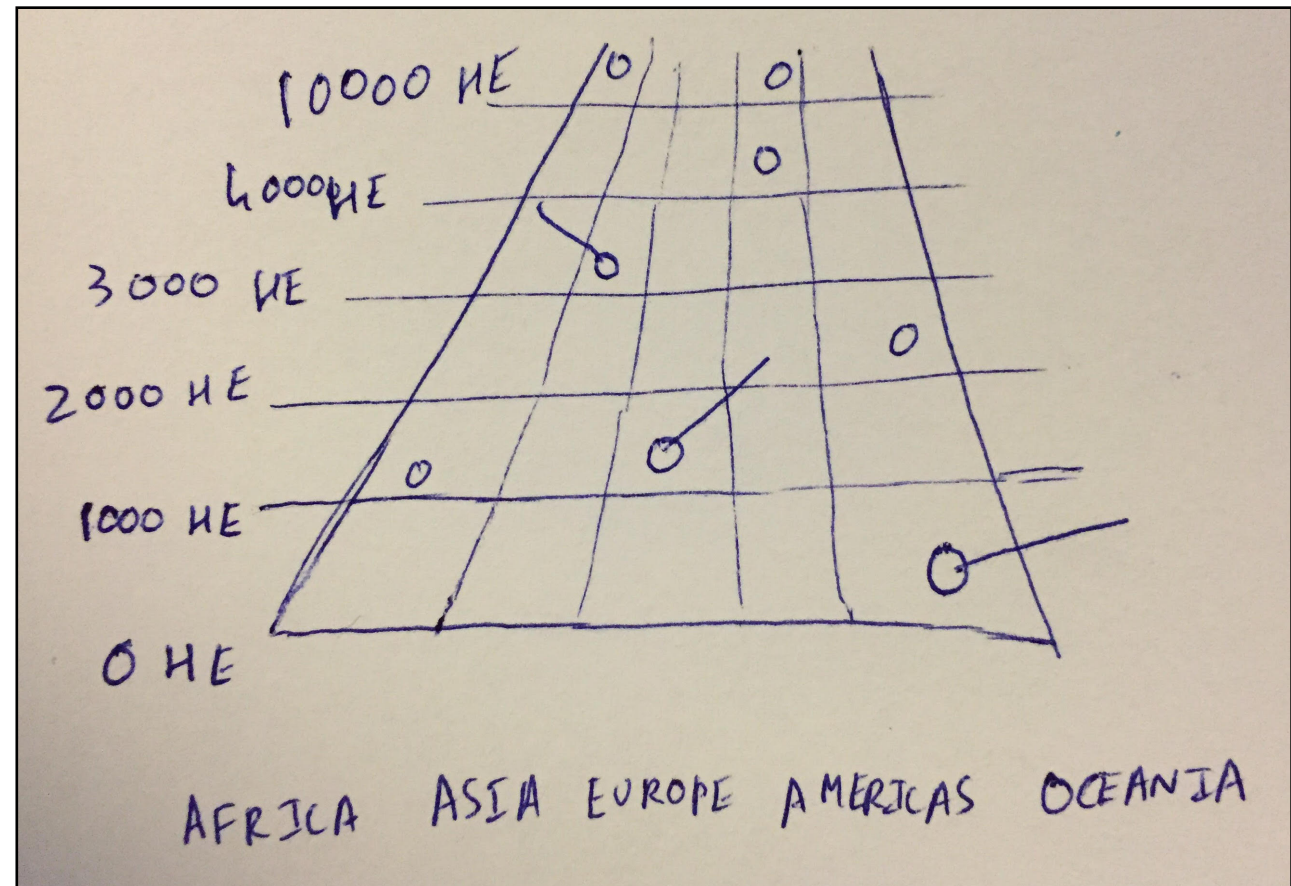 10000 HE
4000 HE
3000 HE
2000 HE
1000 HE
0 HE
AFRICA ASIA EUROPE AMERICAS OCEANIA